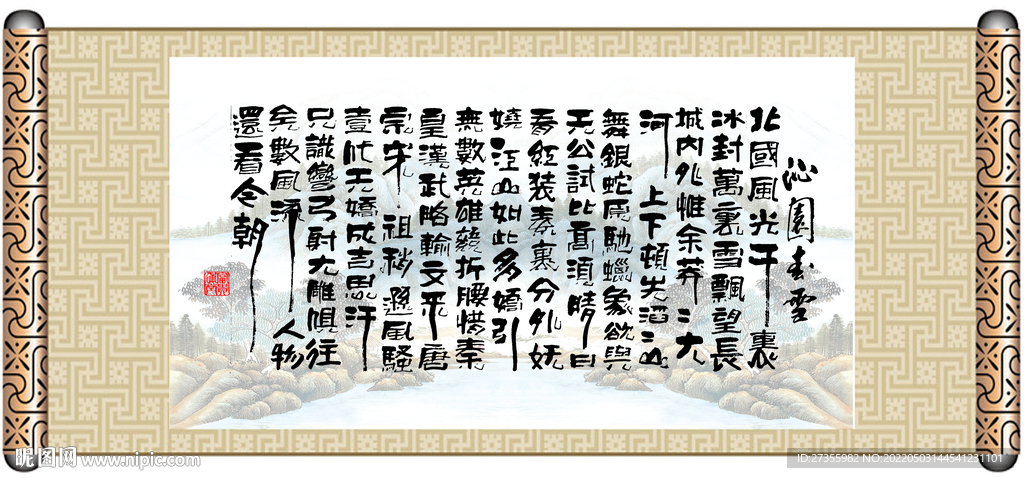 沁園春雪
北國風光千裏
冰封萬裏雪飄望長
城内外惟余莽々大
河上下頓失滔々山
舞銀蛇原馳蠟象欲與
天公試比高須晴日
看紅装素裏分外妖
嬈江山如此多嬌引
無數英雄競折腰惜秦
皇漢武略輸文采唐
宗宋祖稍遜風騷
壹代天嬌成吉思汗
只識彎弓射大雕俱往
矣數風流人物
還看今朝
昵图网 www.nipic.com
ID:27355982 NO:20220503144541231101